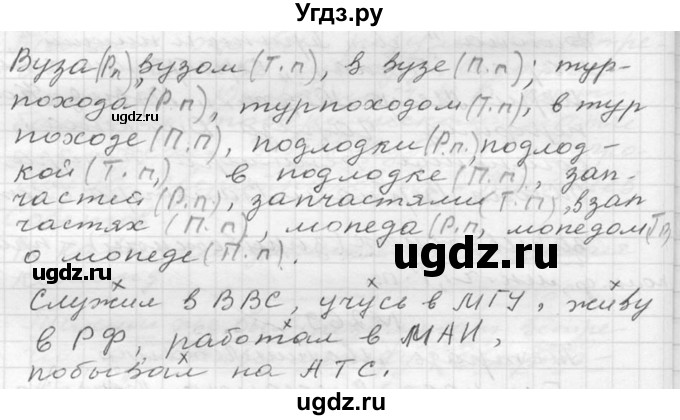 Угдз.ру
Вуза (Рп), вузом (Т.п), в вузе (П.п); тур-
похода (Р.п), турпоходом (Т.п), в тур
походе (П.п), подлодки (Р.п.), подлод-
кой (Т.п,) в подлодке (П.п), зап-
частей (Р.п), запчастями (Т.п), в зап
частях (П.п), мопеда (Р.п, мопедом (Тп)
о мопеде (П.п).
Служил в ВВС, учусь в МГУ, живу
в РФ, работал в МАИ,
побывал на АТС.
ugdz.ru
ugdz.ru
ugdz.ru
ugdz.ru
ugdz.ru